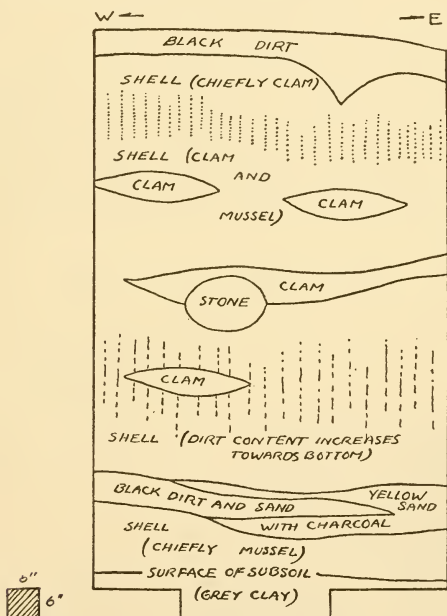 W ← → E
BLACK DIRT
SHELL (CHIEFLY CLAM)
SHELL (CLAM
AND
MUSSEL)
CLAM
CLAM
CLAM
STONE
CLAM
SHELL (DIRT CONTENT INCREASES
TOWARDS BOTTOM)
BLACK DIRT AND SAND
YELLOW
SAND
WITH CHARCOAL
SHELL
(CHIEFLY MUSSEL)
SURFACE OF SUBSOIL
(GREY CLAY)
6"
6"